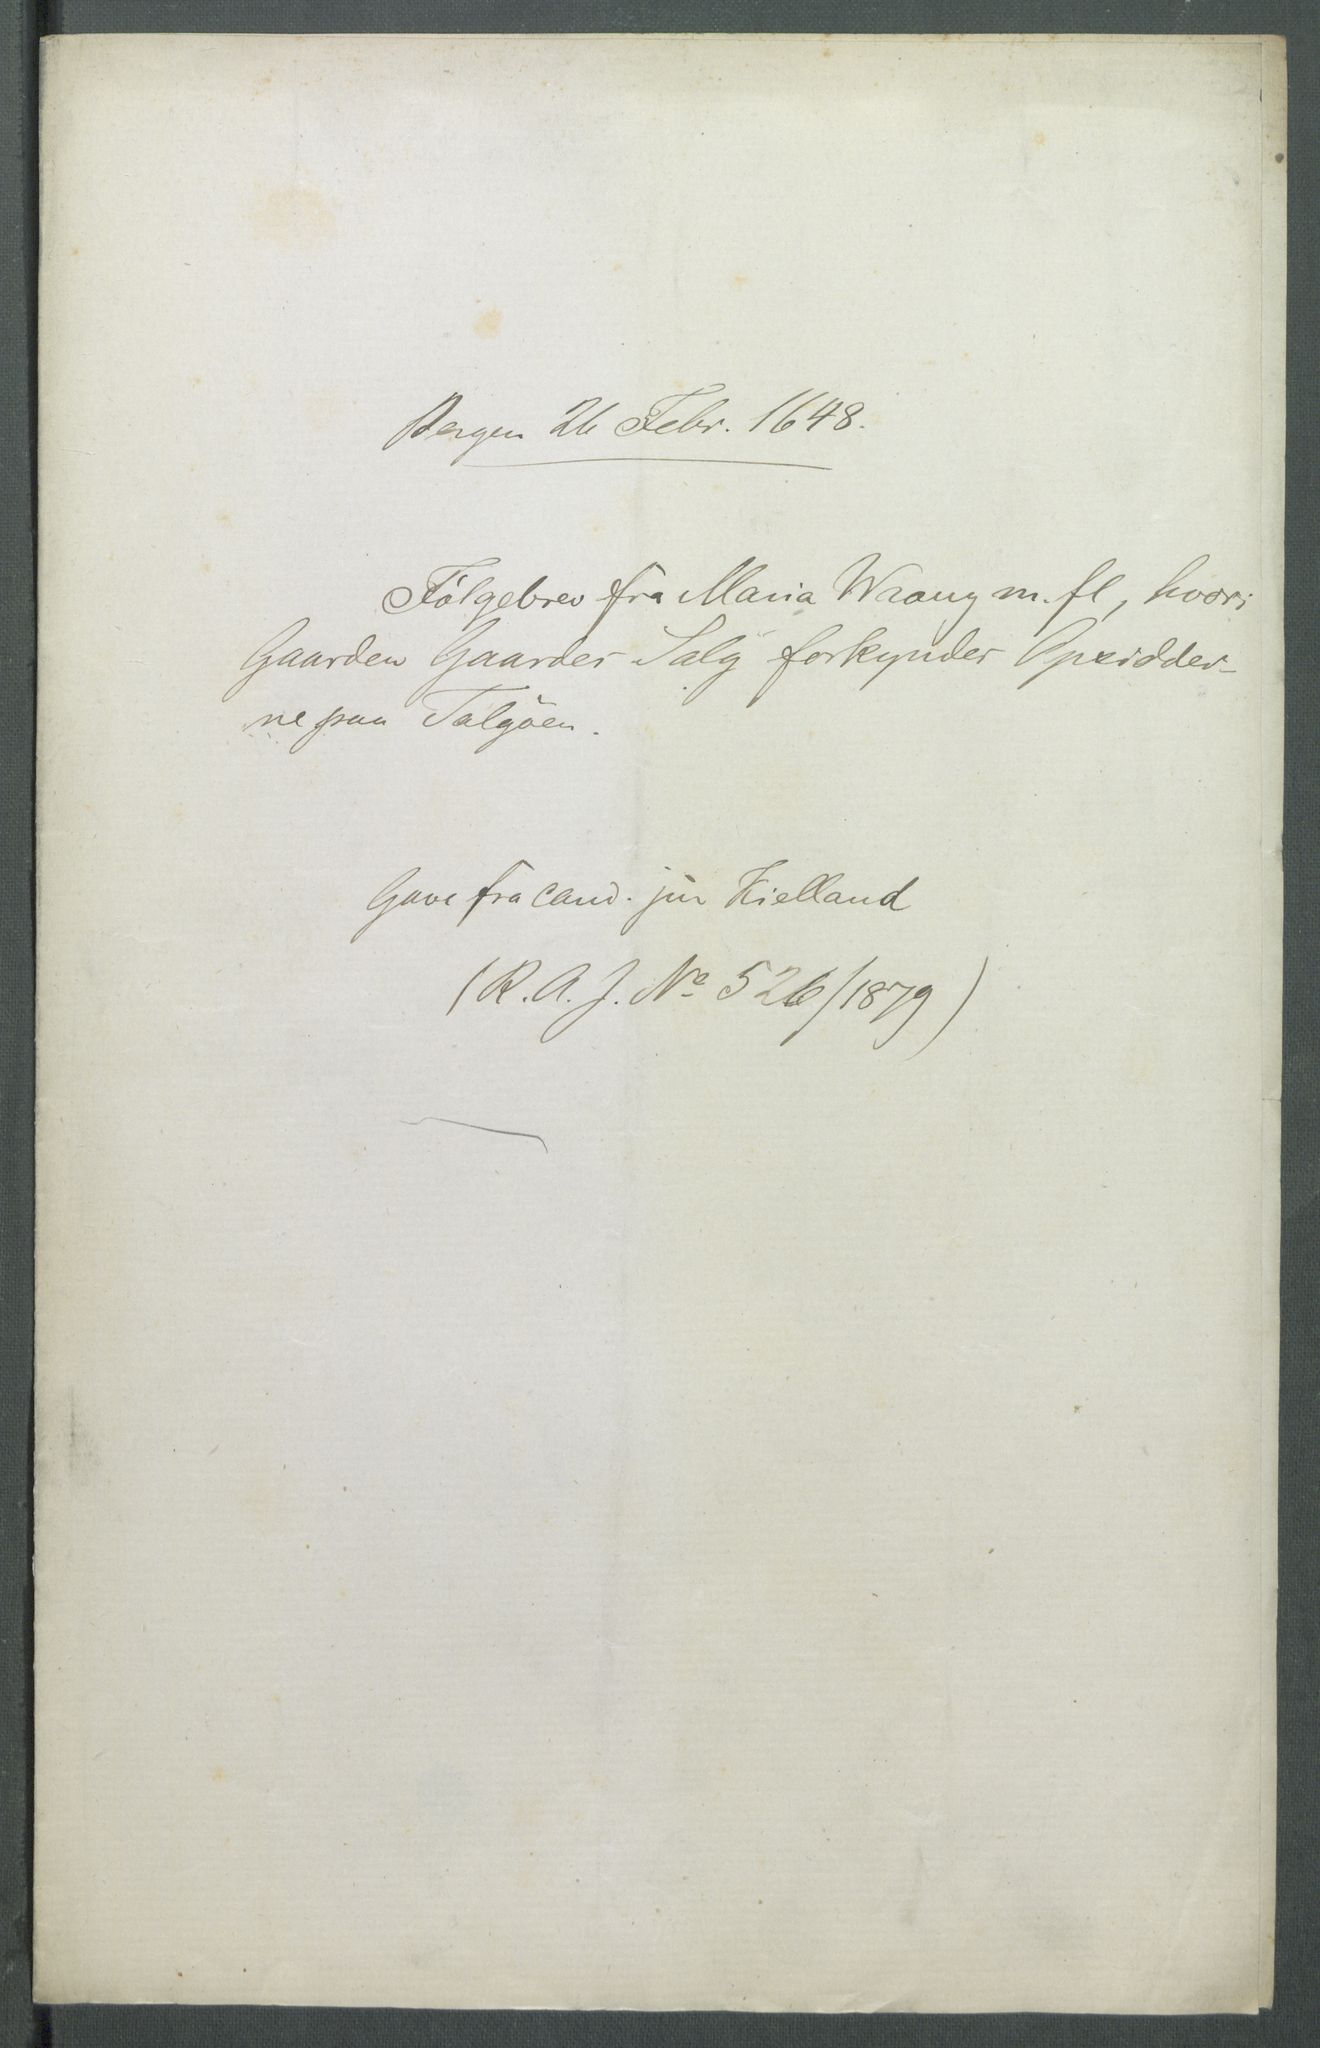 Bergen 26 Febr. 1648.
Følgebrev fra Maria Wrang m. fl, hvori
Gaarden Gaardes Salg forkyndes Opsidder-
ne paa Talgöen.
Gave fra cand. jur Kielland
(R. A. J. No 526/1879)